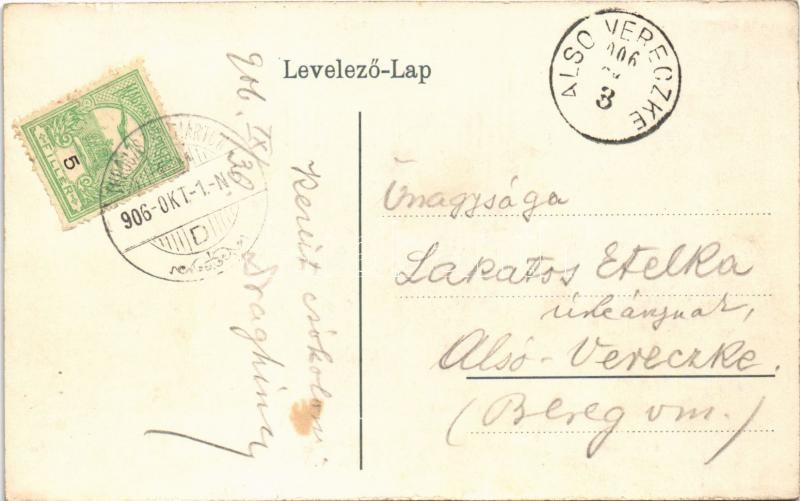 Levelező-Lap
ALSO VERECZKE
906
3
5
FILLÉR
906-OKT-1.-N.
D
906. IX/30
Kezeit csókolom
Önagysága
Lakatos Etelka
úrleánynak,
Alsó-Vereczke.
(Bereg vm.)